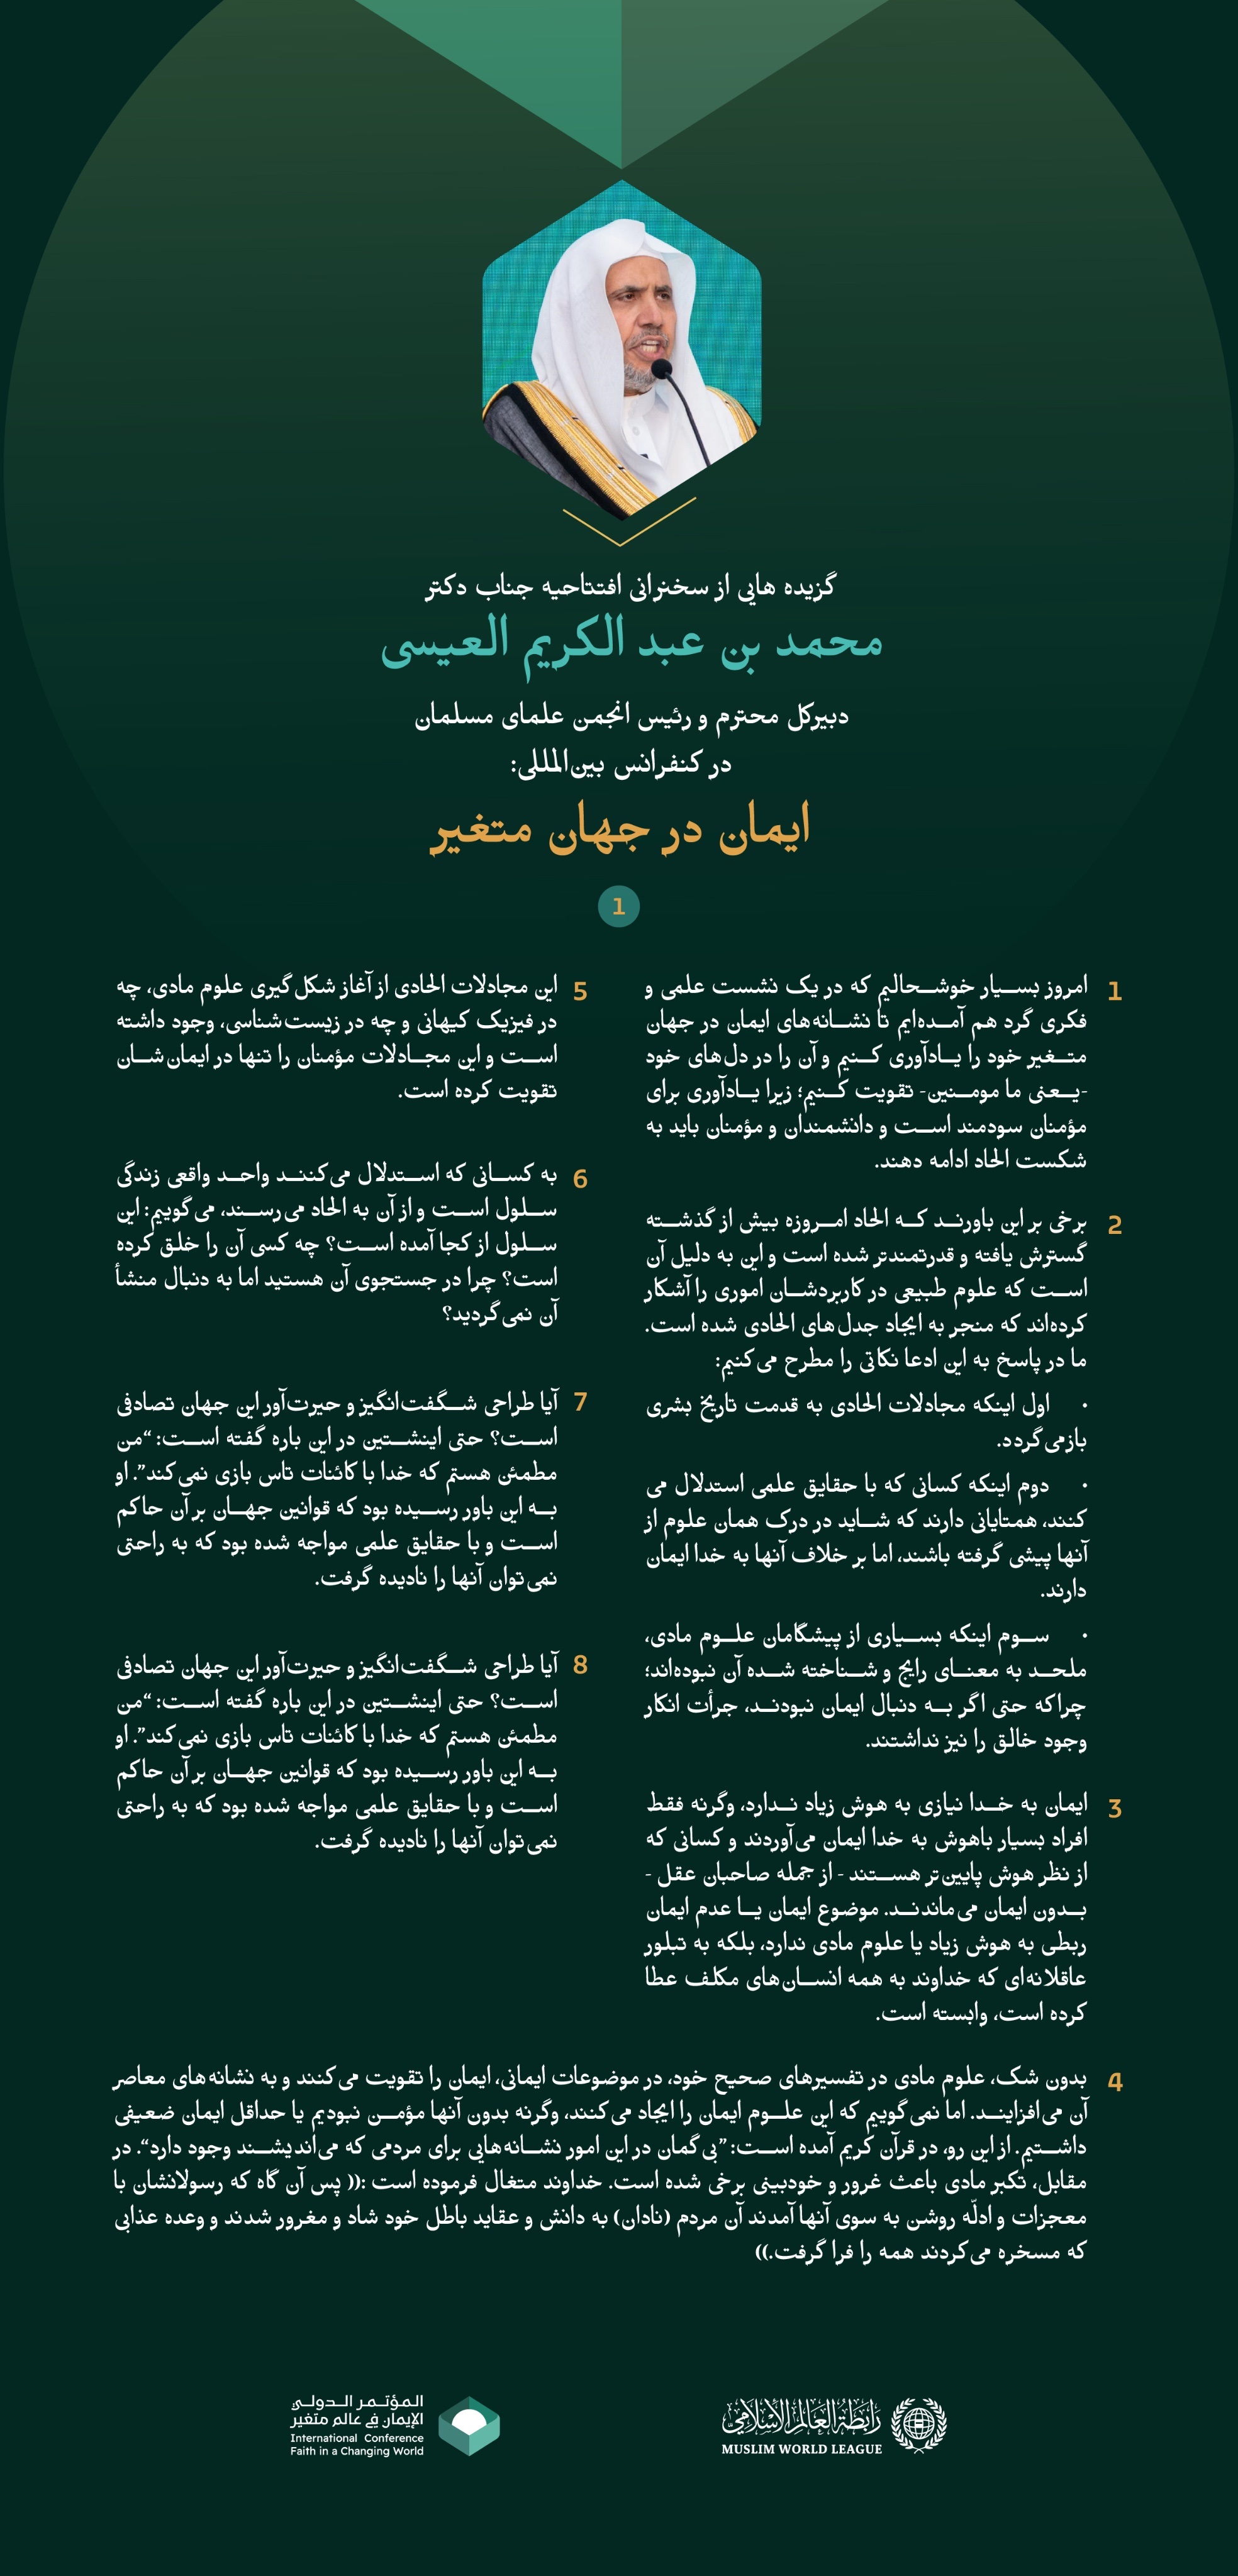 گزیده هایی از سخنرانی افتتاحیه جناب دکتر
محمد بن عبد الکریم العیسی
دبیرکل محترم و رئیس انجمن علمای مسلمان
در کنفرانس بین‌المللی:
ایمان در جهان متغیر
1
1
امروز بسـیار خوشـحالیم که در یک نشست علمی و
فکری گرد هم آمـده‌ایم تا نشـانه‌های ایمان در جهان
متـغیر خود را یـادآوری کـنیم و آن را در دل‌های خود
-یـعنی ما مومـنین- تقویت کـنیم؛ زیرا یـادآوری برای
مؤمنان سودمند اسـت و دانشمندان و مؤمنان باید به
شکست الحاد ادامه دهند.
2
برخی بر این باورنـد کـه الحاد امـروزه بیش از گذشـته
گسترش یافته و قدرتمندتر شده است و این به دلیل آن
اسـت که علوم طبیعی در کاربردشـان اموری را آشکار
کرده‌اند که منجر به ایجاد جدل‌های الحادی شده است.
ما در پاسخ به این ادعا نکاتی را مطرح می‌کنیم:
• اول اینکه مجادلات الحادی به قدمت تاریخ بشری
بازمی‌گردد.
• دوم اینکه کسانی که با حقایق علمی استدلال می
کنند، همتایانی دارند که شـاید در درک همان علوم از
آنها پیشی گرفته باشند، اما بر خلاف آنها به خدا ایمان
دارند.
• سـوم اینکه بسـیاری از پیشگامان علـوم مادی،
ملحـد به معنـای رایج و شـناخته شـده آن نبوده‌اند؛
چراکه حتی اگر بـه دنبال ایمان نبودنـد، جرأت انکار
وجود خالق را نیز نداشتند.
3
ایمان به خـدا نیازی به هوش زیاد نـدارد، وگرنه فقط
افراد بسیار باهوش به خدا ایمان می‌آوردند و کسانی که
از نظر هوش پایین‌تر هسـتند - از جمله صاحبان عقل -
بـدون ایمان می‌ماندنـد. موضوع ایمان یـا عدم ایمان
ربطی به هوش زیاد یا علوم مادی ندارد، بلکه به تبلور
عاقلانه‌ای که خداوند به همه انسـان‌های مکلف عطا
کرده است، وابسته است.
4
بدون شک، علوم مادی در تفسیرهای صحیح خود، در موضوعات ایمانی، ایمان را تقویت می‌کنند و به نشانه‌های معاصر
آن می‌افزاینـد. اما نمی‌گوییم که این علـوم ایمان را ایجاد می‌کنند، وگرنه بدون آنها مؤمـن نبودیم یا حداقل ایمان ضعیفی
داشـتیم. از این رو، در قرآن کریم آمده اسـت: ”بی‌گمان در این امور نشـانه‌هایی برای مردمی که می‌اندیشـند وجود دارد“. در
مقابل، تکبر مادی باعث غرور و خودبینی برخی شده است. خداوند متغال فرموده است :(( پس آن گاه که رسولانشان با
معجزات و ادلّه روشن به سوی آنها آمدند آن مردم (نادان) به دانش و عقاید باطل خود شاد و مغرور شدند و وعده عذابی
که مسخره می‌کردند همه را فرا گرفت.))
5
این مجادلات الحادی از آغاز شکل‌گیری علوم مادی، چه
در فیزیک کیهانی و چه در زیست‌شناسی، وجود داشته
اسـت و این مجـادلات مؤمنان را تنها در ایمان‌شـان
تقویت کرده است.
6
به کسـانی که اسـتدلال می‌کننـد واحـد واقعی زندگی
سـلول اسـت و از آن به الحاد می‌رسـند، می‌گوییم: این
سـلول از کجا آمده اسـت؟ چه کسی آن را خلق کرده
است؟ چرا در جستجوی آن هستید اما به دنبال منشأ
آن نمی‌گردید؟
7
آیا طراحی شـگفت‌انگیز و حیرت‌آور این جهان تصادفی
اسـت؟ حتی اینشـتین در این باره گفته اسـت: “من
مطمئن هستم که خدا با کائنات تاس بازی نمی‌کند”. او
بـه این باور رسـیده بود که قوانین جهـان بر آن حاکم
اسـت و با حقایق علمی مواجه شده بود که به راحتی
نمی‌توان آنها را نادیده گرفت.
8
آیا طراحی شـگفت‌انگیز و حیرت‌آور این جهان تصادفی
اسـت؟ حتی اینشـتین در این باره گفته اسـت: “من
مطمئن هستم که خدا با کائنات تاس بازی نمی‌کند”. او
بـه این باور رسـیده بود که قوانین جهـان بر آن حاکم
اسـت و با حقایق علمی مواجه شده بود که به راحتی
نمی‌توان آنها را نادیده گرفت.
رابطة العالم الإسلامي
MUSLIM WORLD LEAGUE
المؤتـمر الـدولـي
الإيمان في عالم متغير
International Conference
Faith in a Changing World